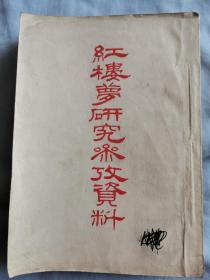 紅樓夢研究參攷資料